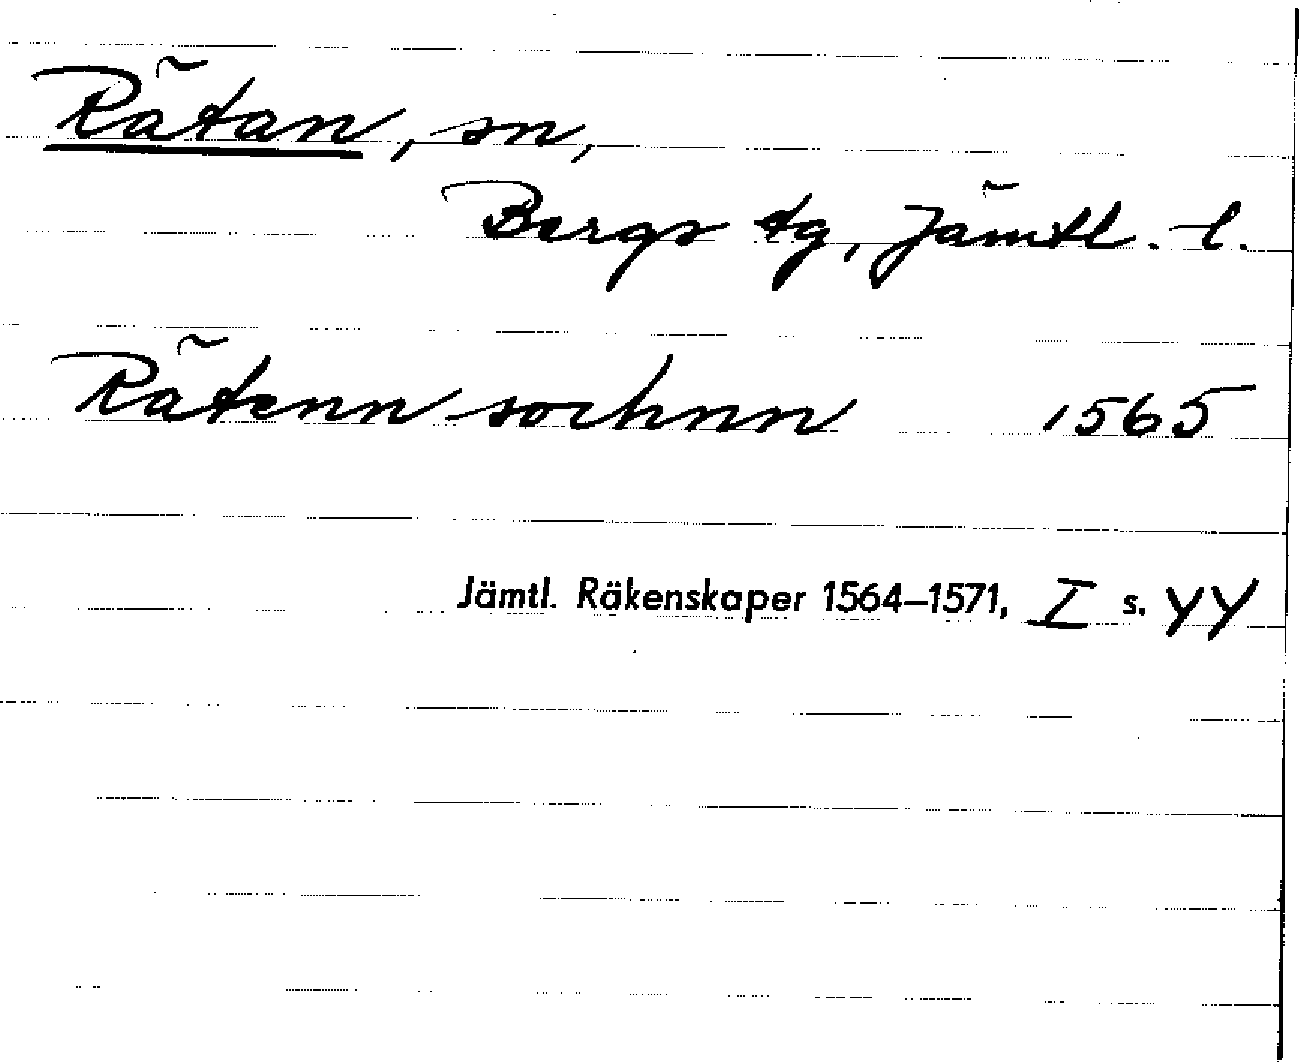 Rätan, sn,
Bergs tg, Jämtl. l.
Rätenn sochnn 1565
Jämtl. Räkenskaper 1564–1571, I s. 44